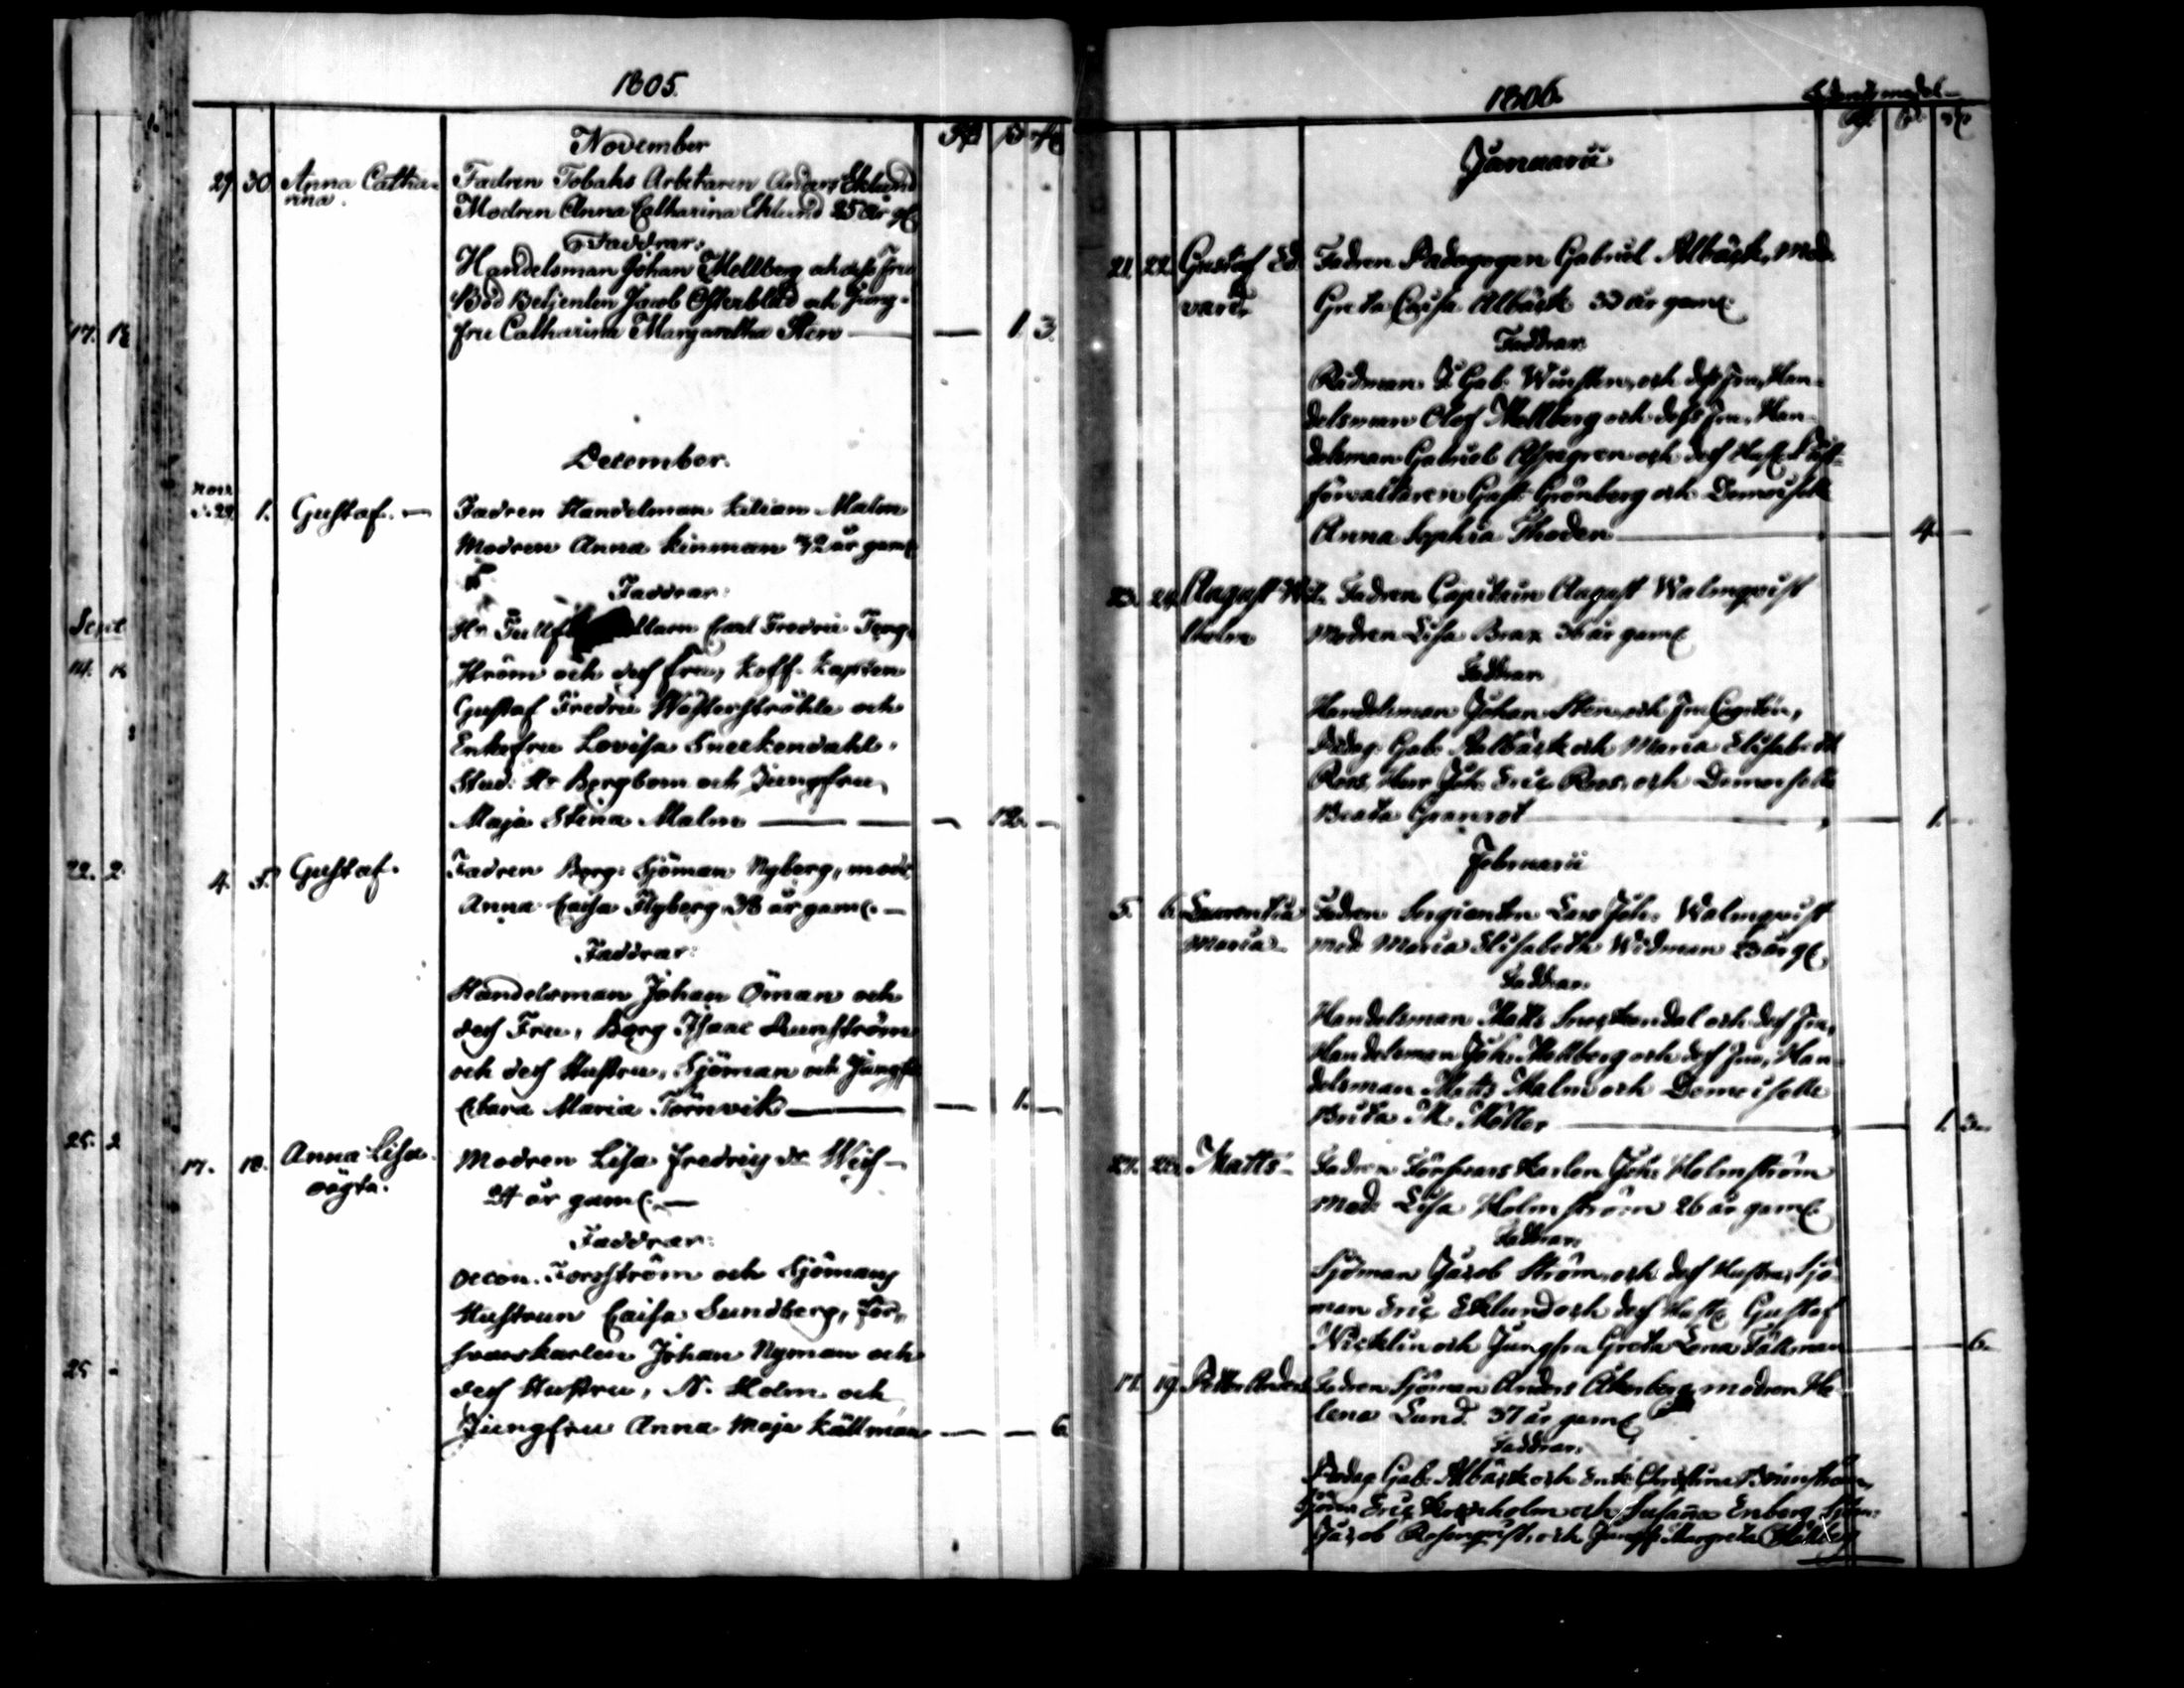 1805.
November
29. 30. Anna Catha- Fadren Tobaks Arbetaren Anders Eklund
rina. Modren Anna Catharina Eklund 25 år gl.
Faddrar:
Handelsman Johan Mellberg och dess fru
Bod Betjenten Jacob Österblad och Jung-
fru Catharina Margaretha Sten — — 1. 3.
December.
Novr
d. 29. 1. Gustaf. — Fadren Handelsman Kilian Malm
Modren Anna Kinman 42 år gaml
Faddrar:
Hr Carl Fredric Teng-
ström och dess fru, Koff. Kapten
Gustaf Fredric Wästerstråhle och
Enkefru Lovisa Sneckendahl,
Stud: Hr Bergbom och Jungfru
Maja Stina Malm — — — 12. —
4. 5. Gustaf. Fadren Borg: Sjöman Nyberg, modr
Anna Caisa Nyberg 38 år gaml. —
Faddrar:
Handelsman Johan Öman och
dess Fru, Borg Isaac Runström
och dess Hustru, Sjöman och Jungfr
Clara Maria Törnvik — — 1. —
17. 18. Anna Lisa Modren Lisa Fredrics dr Weis —
oägta. 24 år gaml. —
Faddrar:
Oecon. Forsström och Sjömans
Hustrun Caisa Sundberg, För-
svarskarlen Johan Nyman och
dess Hustru, N. Holm och
Jungfru Anna Maja Källman — — 6.
17. 18
Sept
14. 1
22. 2
25. 2
25 -
1806.
Januarii
21. 22. Gustaf Ed- Fadren Pædagogen Gabriel Albäck, Mod.
vard, Greta Caisa Albäck 33 år gaml
Faddrar
Rådman J. Gab. Winsten, och dess fru, Han-
delsman Olof Mellberg och dess fru, Han-
delsman Gabriel Aspegren och dess Hust.
förvaltaren Gust. Grönberg och Demoiselle
Anna Sophia Thoden — 4. —
23. 24. August Wil- Fadren Capitain August Walmqvist
helm Modren Lisa Brax 36 år gaml
Faddrar
Handelsman Johan Sten, och
Pædag. Gab. Aalbäck och Maria Elisabeth
Roos, Herr Joh. Eric Roos, och Demoiselle
Beata Granrot — 1.
Februarii
5. 6. Laurentia Fadren Sergianten Lars Joh. Walmqvist
Maria — mod. Maria Elisabeth Widman 23 år gl
Faddrar
Handelsman Matts Sneckendal och dess fru,
Handelsman Joh. Mellberg och dess fru, Han-
delsman Matts Malm och Demoiselle
Brita M. Möller — 1. 3.
27. 28. Matts — Fadren Försvars karlen Joh. Holmström
Mod. Lisa Holmström 26 år gaml
Faddrar
Sjöman Jacob Ström, och dess Hustru, Sjö-
man Eric Eklund och dess Hust. Gustaf
Nicklin och Jungfru Greta Lena Fältman — 6.
17. 19. Petter Anders Fadren Sjöman Anders Åkerberg modren He-
lena Lund. 37 år gaml
Faddrar
Pædag. Gab. Albäck och Enk. Christina Brunström,
Sjöm. Eric och Susaña Enberg, Sjöm:
Jacob Rosenqvist, och Jungf. Margreta